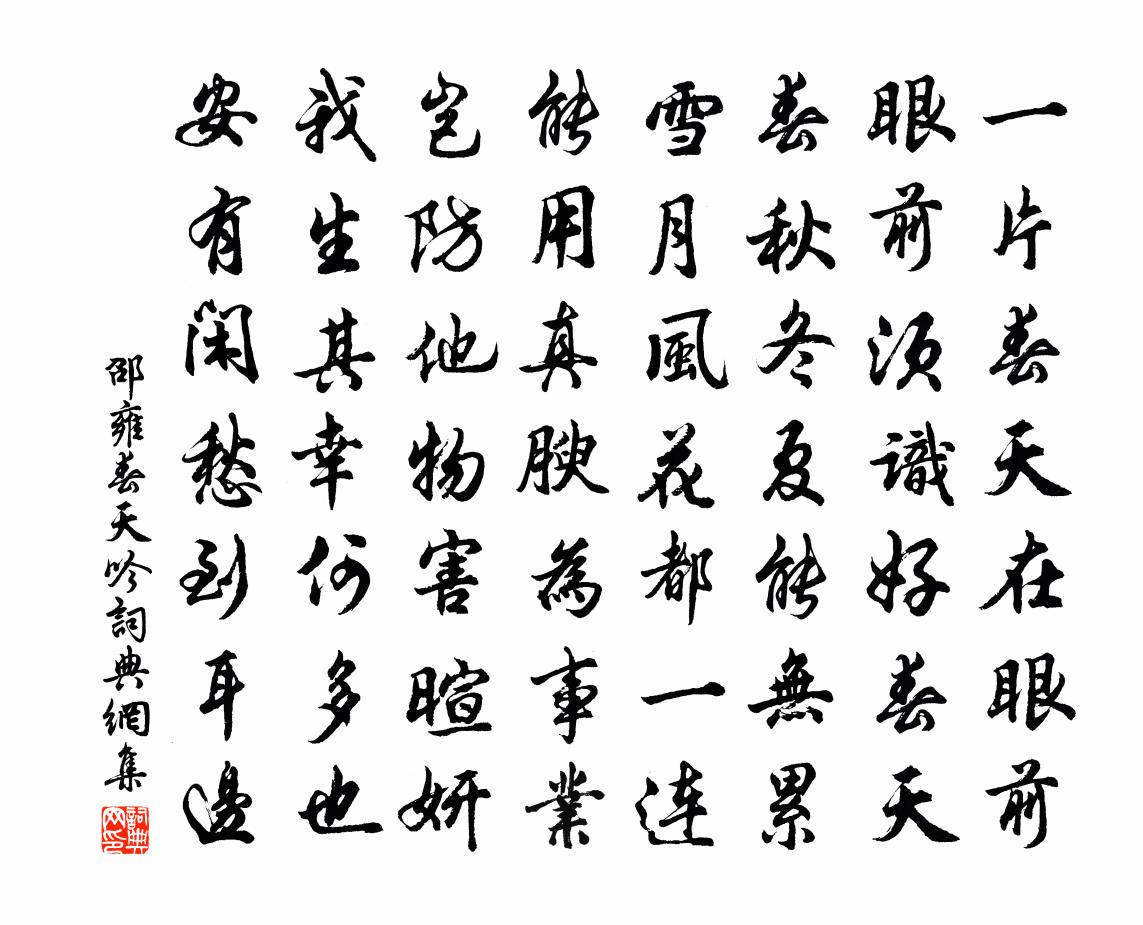 一片春天在眼前
眼前須識好春天
春秋冬夏能無累
雪月風花都一連
能用真腴為事業
豈防他物害暄妍
我生其幸何多也
安有閑愁到耳邊
邵雍春天吟詞典網集
詞典网印